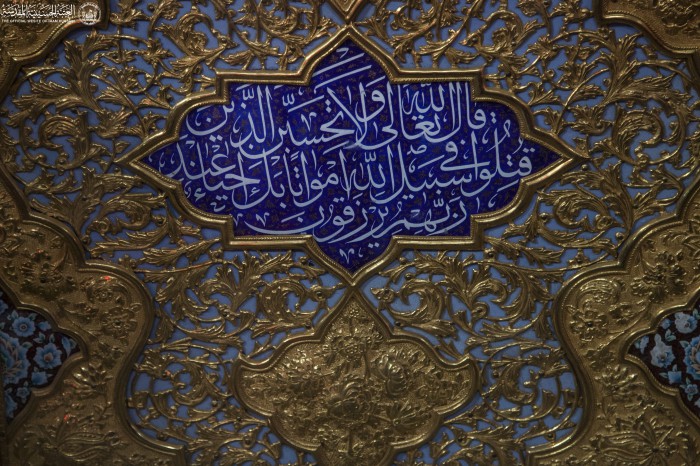 العتبة الحسينية المقدسة
THE OFFICIAL WEBSITE OF IMAM HUSSAIN
قال الله تعالى ولا تحسبن الذين
قتلوا في سبيل الله أمواتا بل أحياء عند
ربهم يرزقون